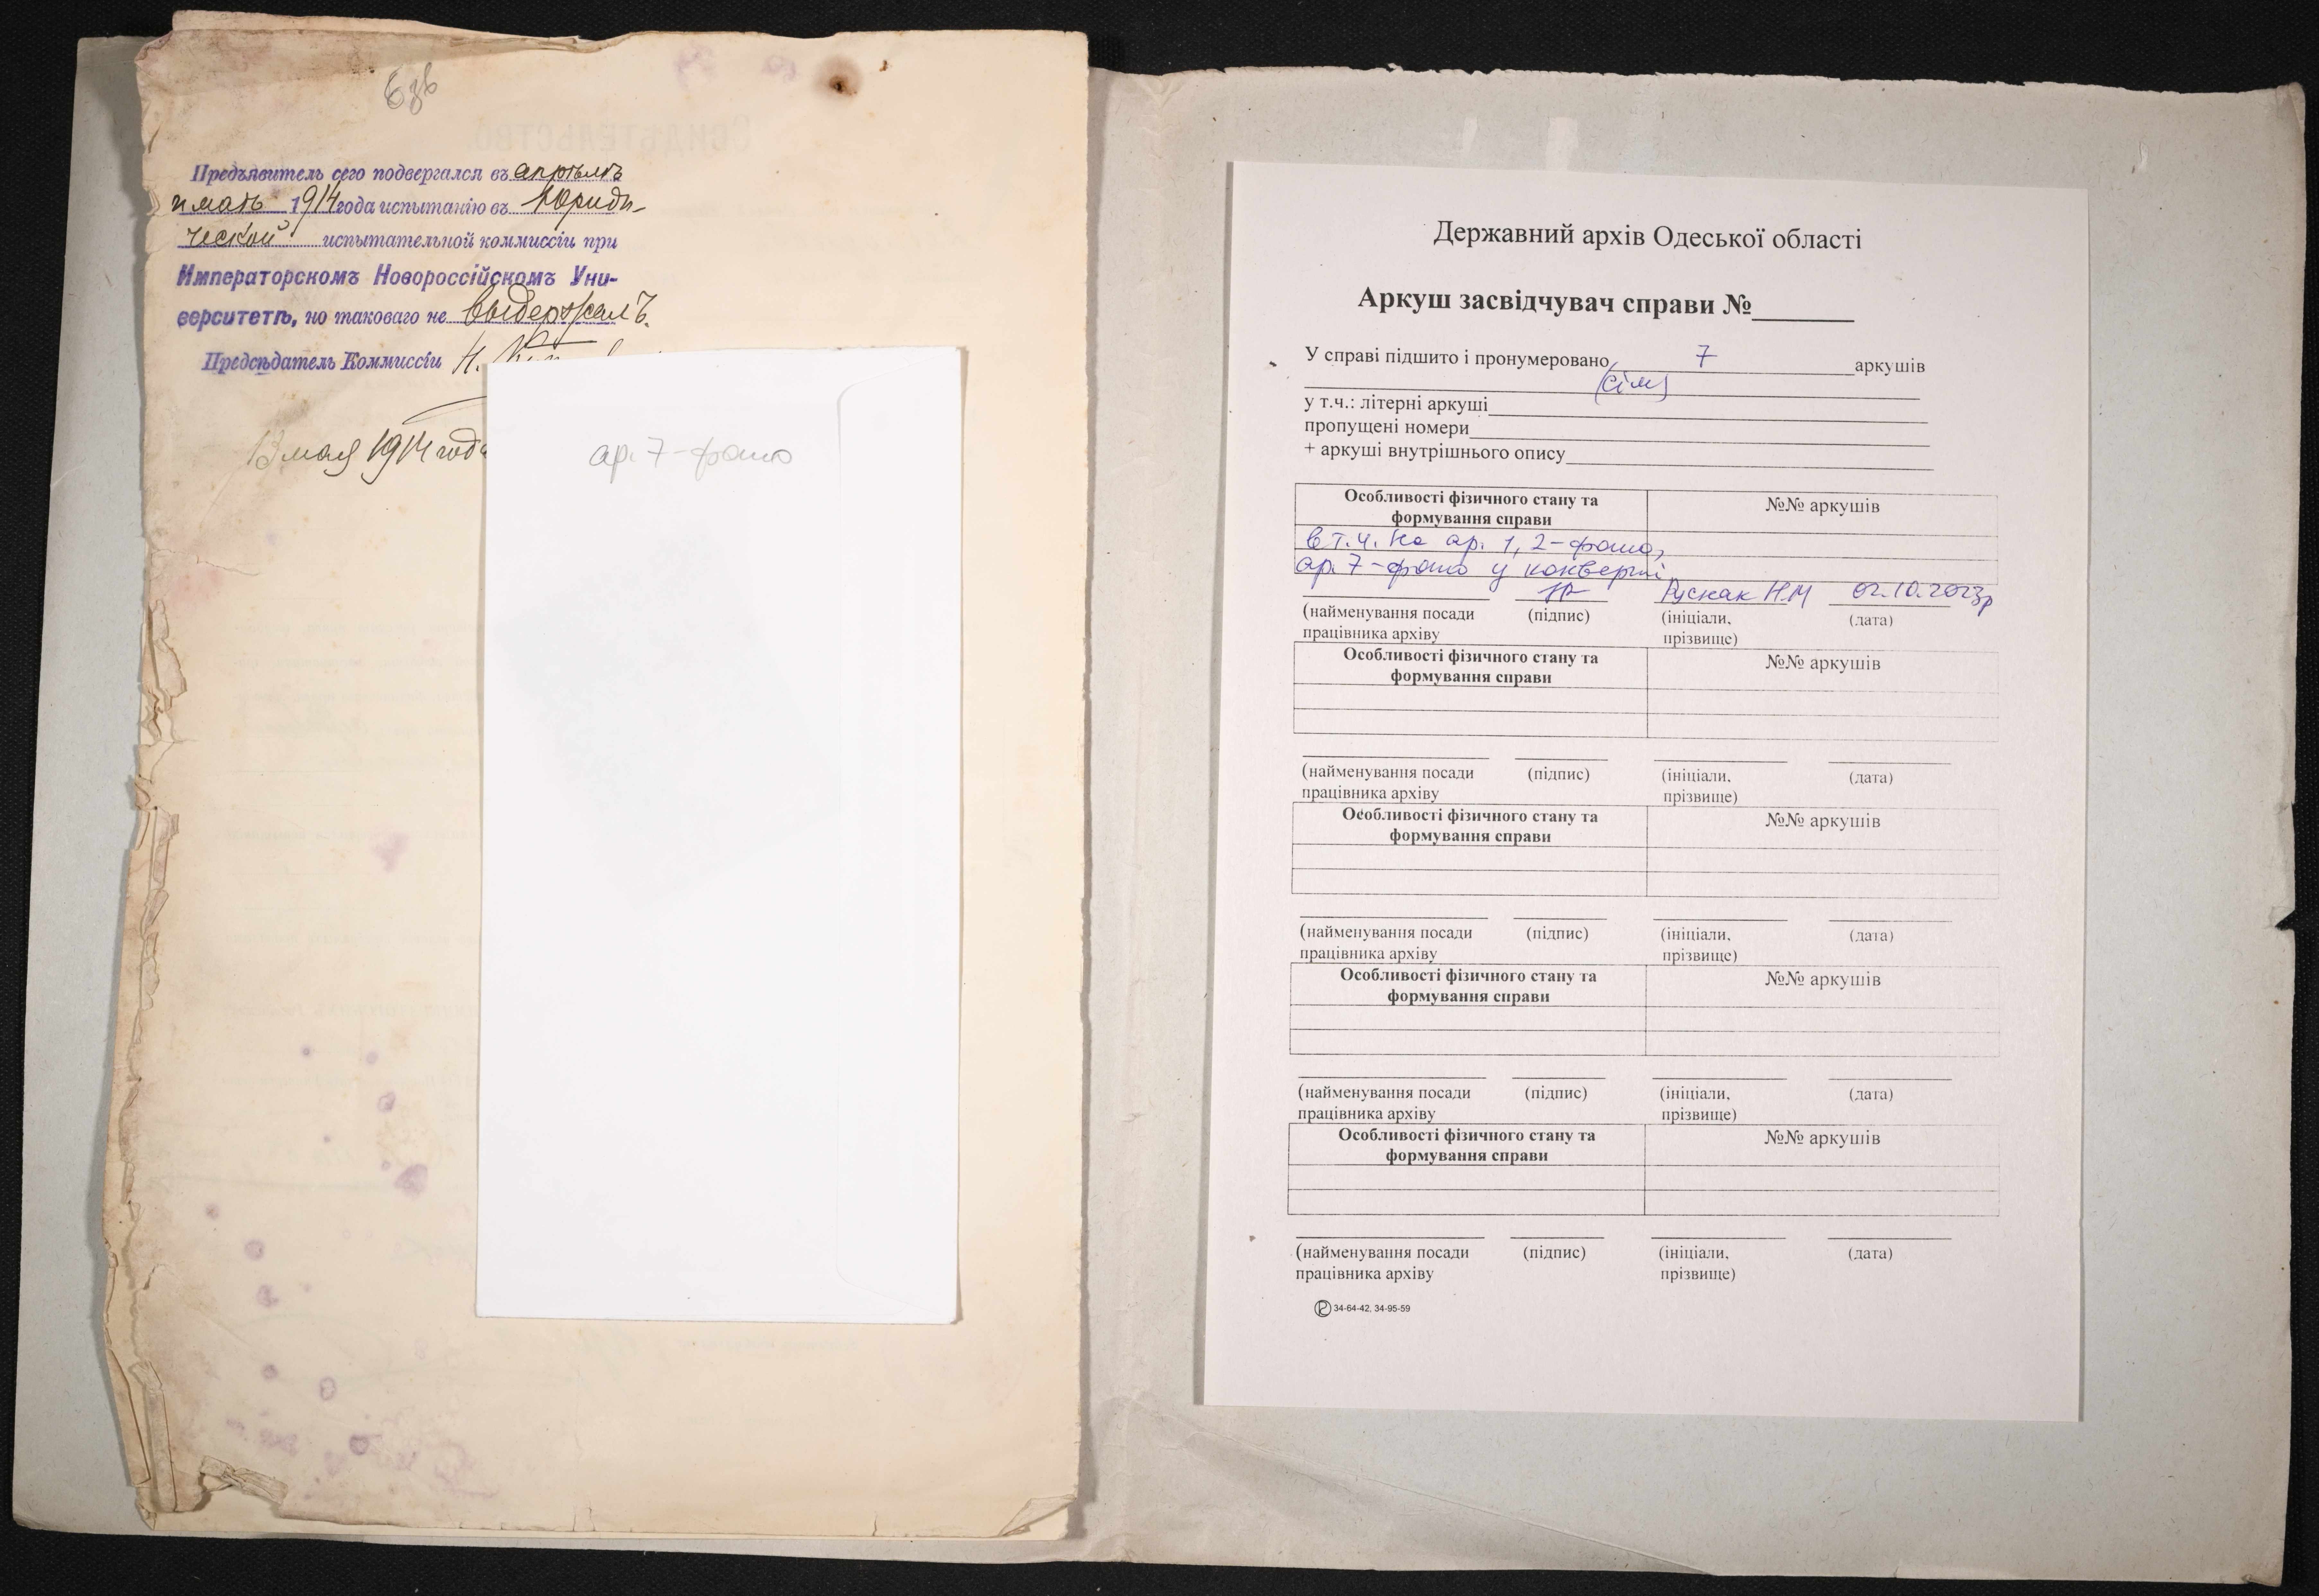 6зв
Предъявитель сего подвергался въ апрѣлѣ
и маѣ 1914 года испытанію въ Юриди-
ческой испытательной коммиссіи при
Императорскомъ Новороссійскомъ Уни-
верситетѣ, но таковаго не выдержалъ.
Предсѣдатель Коммиссіи Н.
13 мая 1914 года
ар. 7 - фото
Державний архів Одеської області
Аркуш засвідчувач справи №
У справі підшито і пронумеровано 7 аркушів
(сім)
у т.ч.: літерні аркуші
пропущені номери
+ аркуші внутрішнього опису
Особливості фізичного стану та №№ аркушів
формування справи
в т.ч. на ар. 1, 2 - фото,
ар. 7 - фото у конверті
Руснак Н.М 02.10.2023р
(найменування посади (підпис) (ініціали, (дата)
працівника архіву прізвище)
Особливості фізичного стану та №№ аркушів
формування справи
(найменування посади (підпис) (ініціали, (дата)
працівника архіву прізвище)
Особливості фізичного стану та №№ аркушів
формування справи
(найменування посади (підпис) (ініціали, (дата)
працівника архіву прізвище)
Особливості фізичного стану та №№ аркушів
формування справи
(найменування посади (підпис) (ініціали, (дата)
працівника архіву прізвище)
Особливості фізичного стану та №№ аркушів
формування справи
(найменування посади (підпис) (ініціали, (дата)
працівника архіву прізвище)
34-64-42, 34-95-59